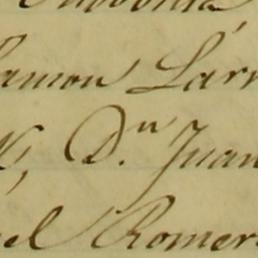 amon Lárr
, D.ⁿ Juan
el Romer